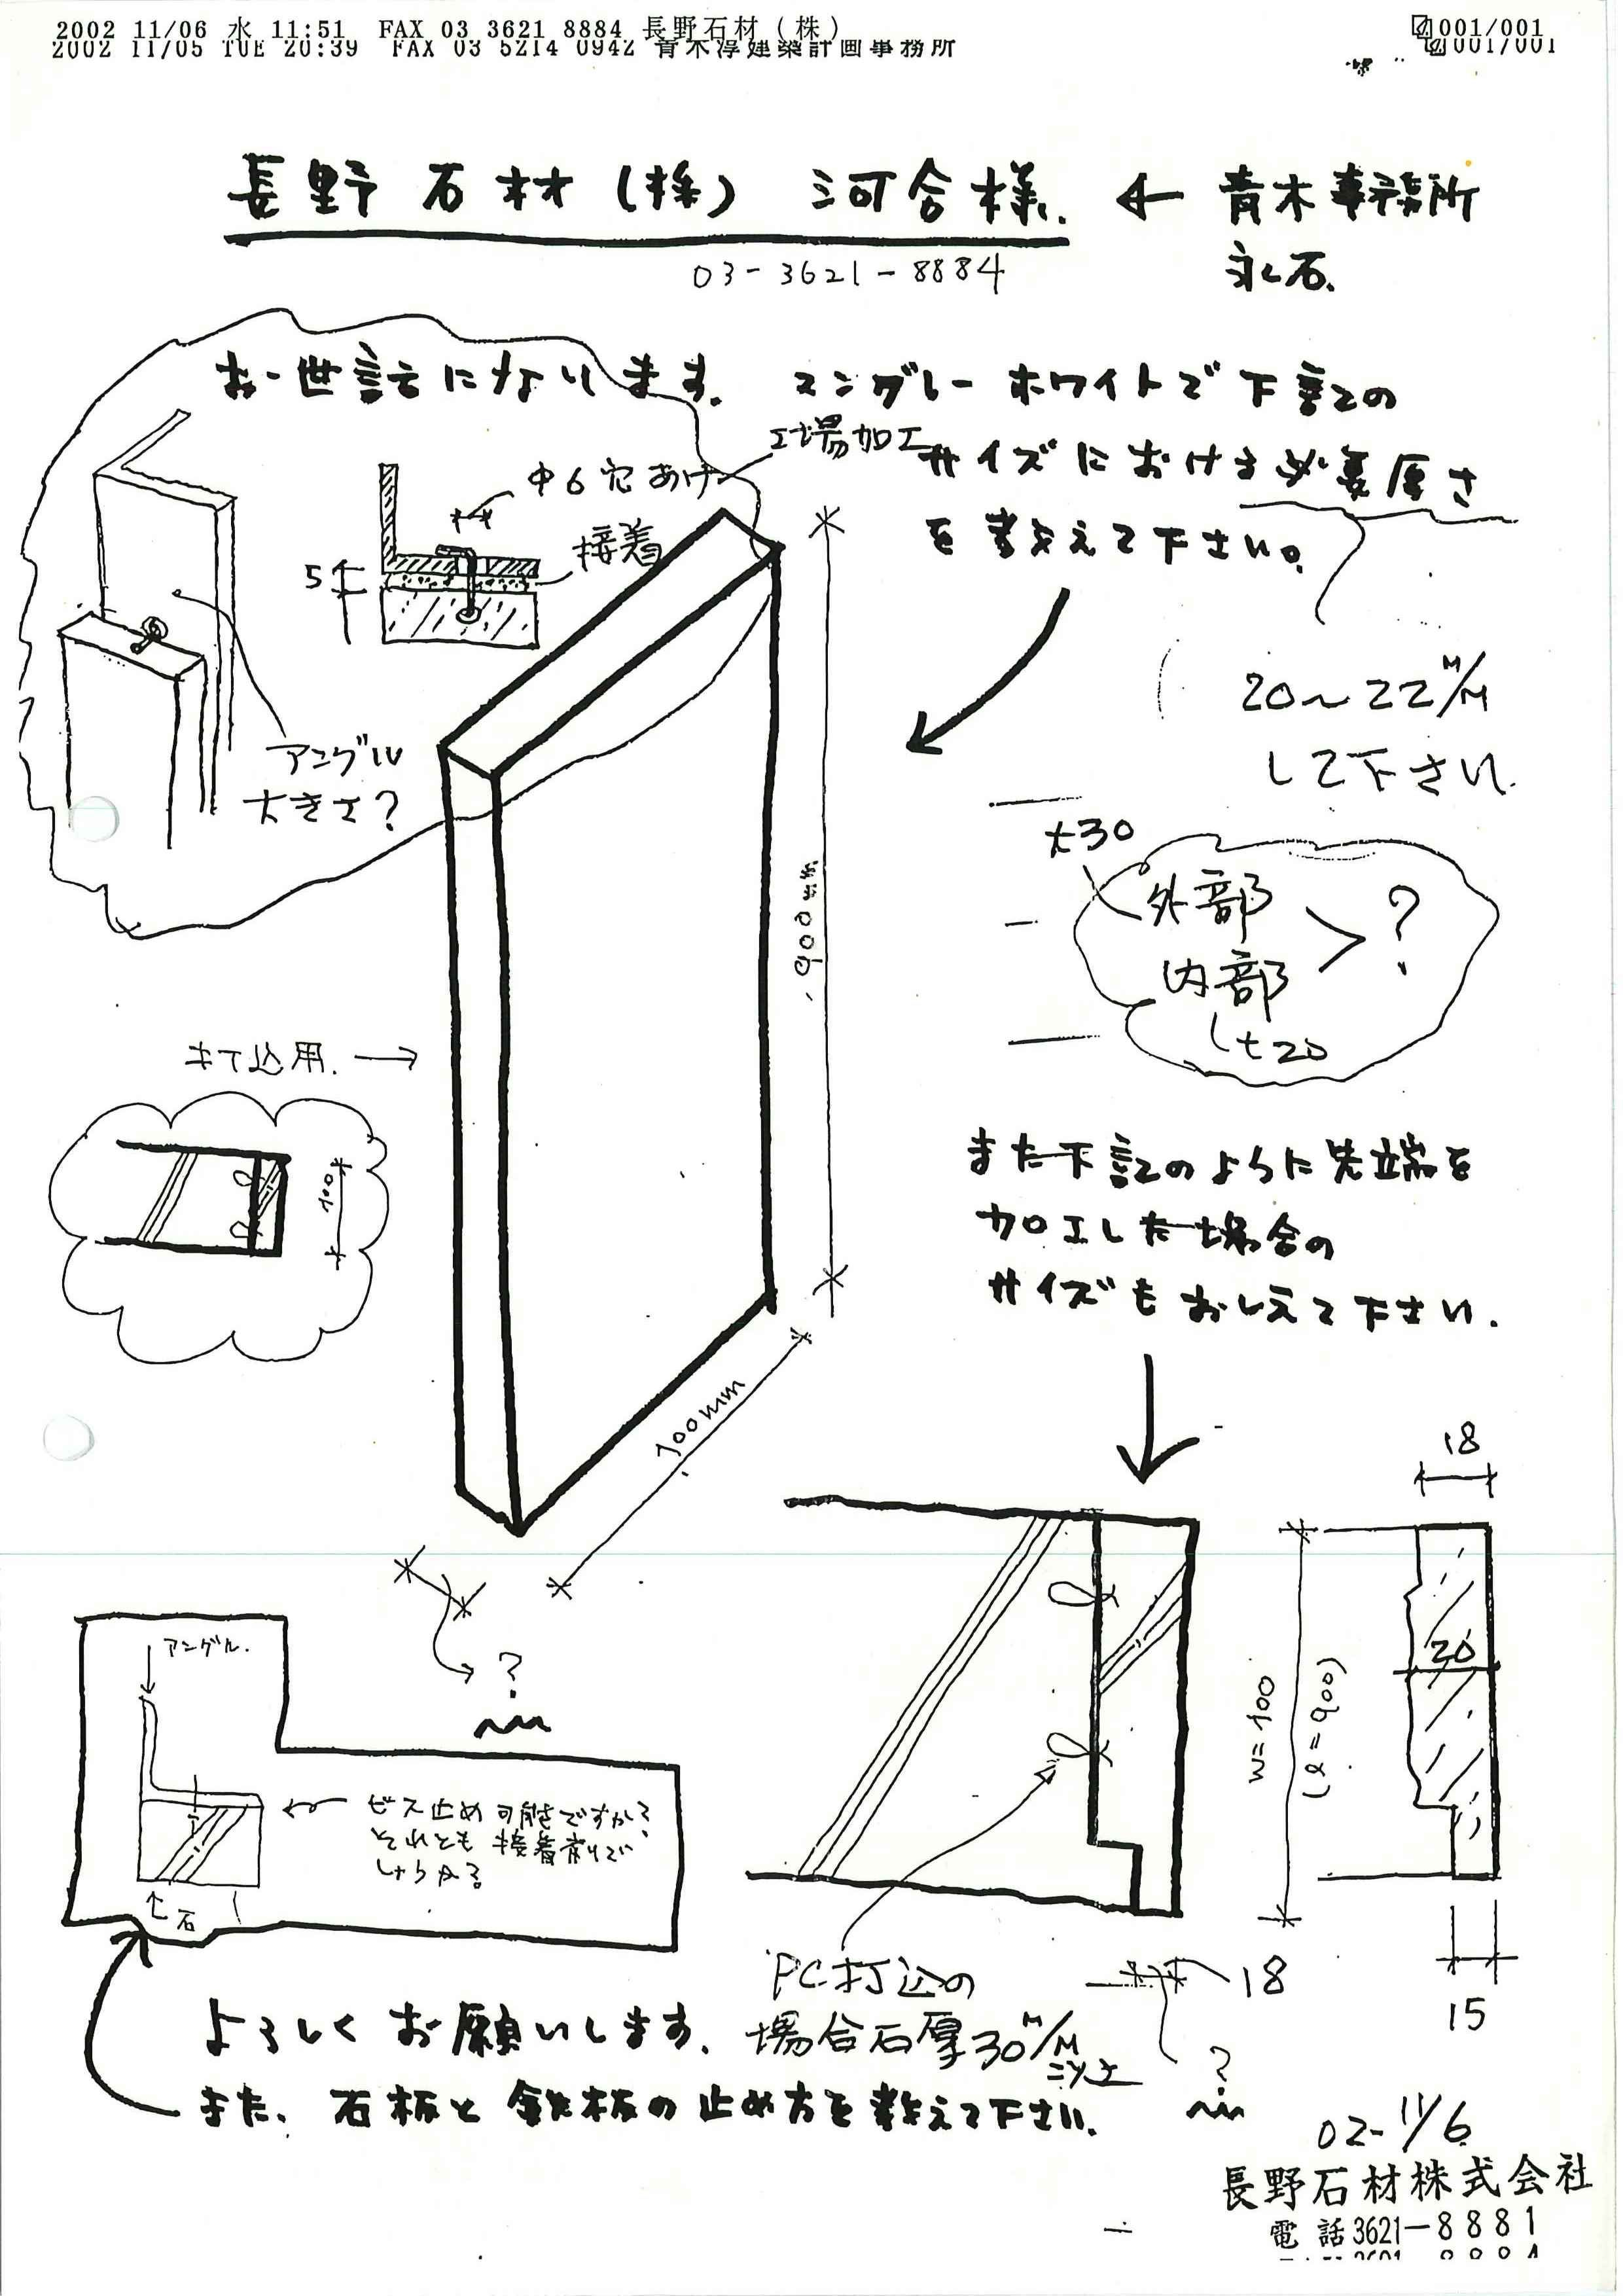 2002 11/06 水 11:51 FAX 03 3621 8884 長野石材(株) 001/001
2002 11/05 TUE 20:39 FAX 03 5214 0942 青木淳建築計画事務所 001/001
長野石材(株) 河合様. ← 青木事務所
永石.
03-3621-8884
お世話になります. スングレーホワイトで下記の
サイズにおける必要厚さ
を教えて下さい。
工場加工
φ6穴あけ
接着
5
アングル
大きさ?
20~22M/M
して下さい.
t30
外部
内部
> ?
t20
900mm
100mm
打込用. →
100
また下記のように先端を
加工した場合の
サイズもおしえて下さい.
18
20
15
w=100
(l=900)
?
アングル.
ビス止め可能ですか?
それとも接着剤で
しょうか?
石
PC打込の
場合石厚30M/M
以上
18
?
よろしくお願いします.
また、石板と鉄板の止め方を教えて下さい.
02-11/6
長野石材株式会社
電話3621-8881